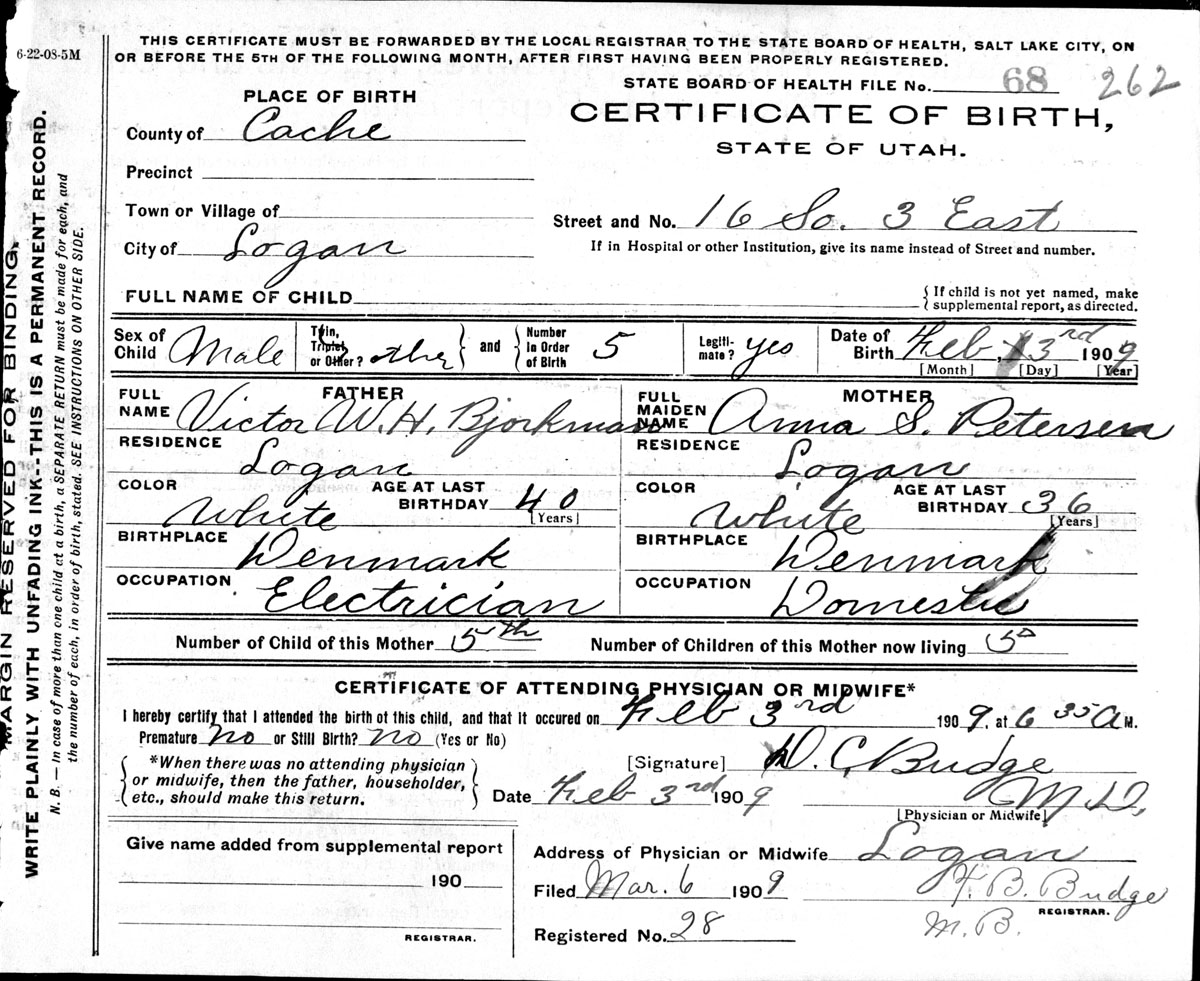 6-22-08-5M
THIS CERTIFICATE MUST BE FORWARDED BY THE LOCAL REGISTRAR TO THE STATE BOARD OF HEALTH, SALT LAKE CITY, ON
OR BEFORE THE 5TH OF THE FOLLOWING MONTH, AFTER FIRST HAVING BEEN PROPERLY REGISTERED.
STATE BOARD OF HEALTH FILE No. 68 262
PLACE OF BIRTH
CERTIFICATE OF BIRTH,
STATE OF UTAH.
County of Cache
Precinct
Town or Village of
Street and No. 16 So. 3 East
City of Logan
If in Hospital or other Institution, give its name instead of Street and number.
FULL NAME OF CHILD
{ If child is not yet named, make
supplemental report, as directed.
Sex of Child Male
Twin, Triplet, or Other? other } and { Number in Order of Birth 5
Legiti-mate? yes
Date of Birth Feb, 3rd 1909
[Month] [Day] [Year]
FATHER
FULL NAME Victor W. H. Bjorkman
MOTHER
FULL MAIDEN NAME Anna S. Petersen
RESIDENCE Logan
RESIDENCE Logan
COLOR White AGE AT LAST BIRTHDAY 40 [Years]
COLOR White AGE AT LAST BIRTHDAY 36 [Years]
BIRTHPLACE Denmark
BIRTHPLACE Denmark
OCCUPATION Electrician
OCCUPATION Domestic
Number of Child of this Mother 5th Number of Children of this Mother now living 5
CERTIFICATE OF ATTENDING PHYSICIAN OR MIDWIFE*
I hereby certify that I attended the birth of this child, and that it occured on Feb 3rd 1909, at 6 35 A M.
Premature No or Still Birth? No (Yes or No)
{ *When there was no attending physician
or midwife, then the father, householder,
etc., should make this return. }
[Signature] D. C. Budge
Date Feb 3rd 1909 M.D.
[Physician or Midwife]
Give name added from supplemental report
190
REGISTRAR.
Address of Physician or Midwife Logan
Filed Mar. 6 1909 T. B. Budge
REGISTRAR.
Registered No. 28 M. B.
MARGIN RESERVED FOR BINDING.
WRITE PLAINLY WITH UNFADING INK--THIS IS A PERMANENT RECORD.
N. B. — In case of more than one child at a birth, a SEPARATE RETURN must be made for each, and
the number of each, in order of birth, stated. SEE INSTRUCTIONS ON OTHER SIDE.